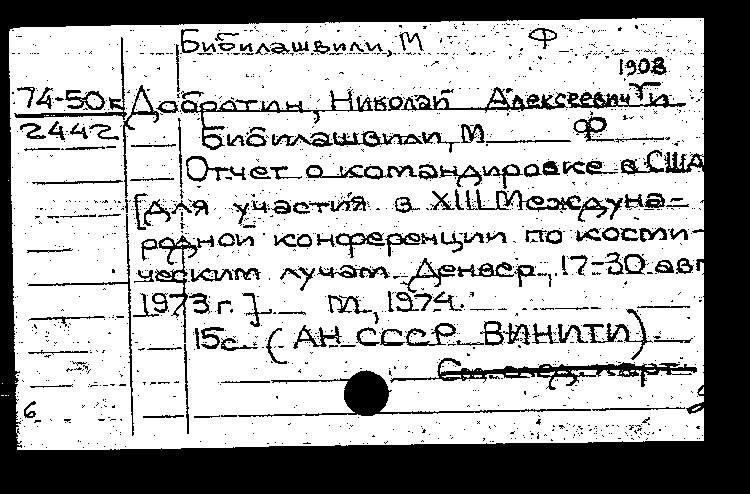 Бибилашвили, М Ф
1908
74-50к Добротин, Николай Алексеевич и
2442 Бибилашвили, М Ф
Отчет о командировке в США
[Для участия в XIII Междуна-
родной конференции по косми-
ческим лучам. Денвер, 17-30 авг
1973 г.] М., 1974.
15с. (АН СССР. ВИНИТИ).
См. след. карт.
6